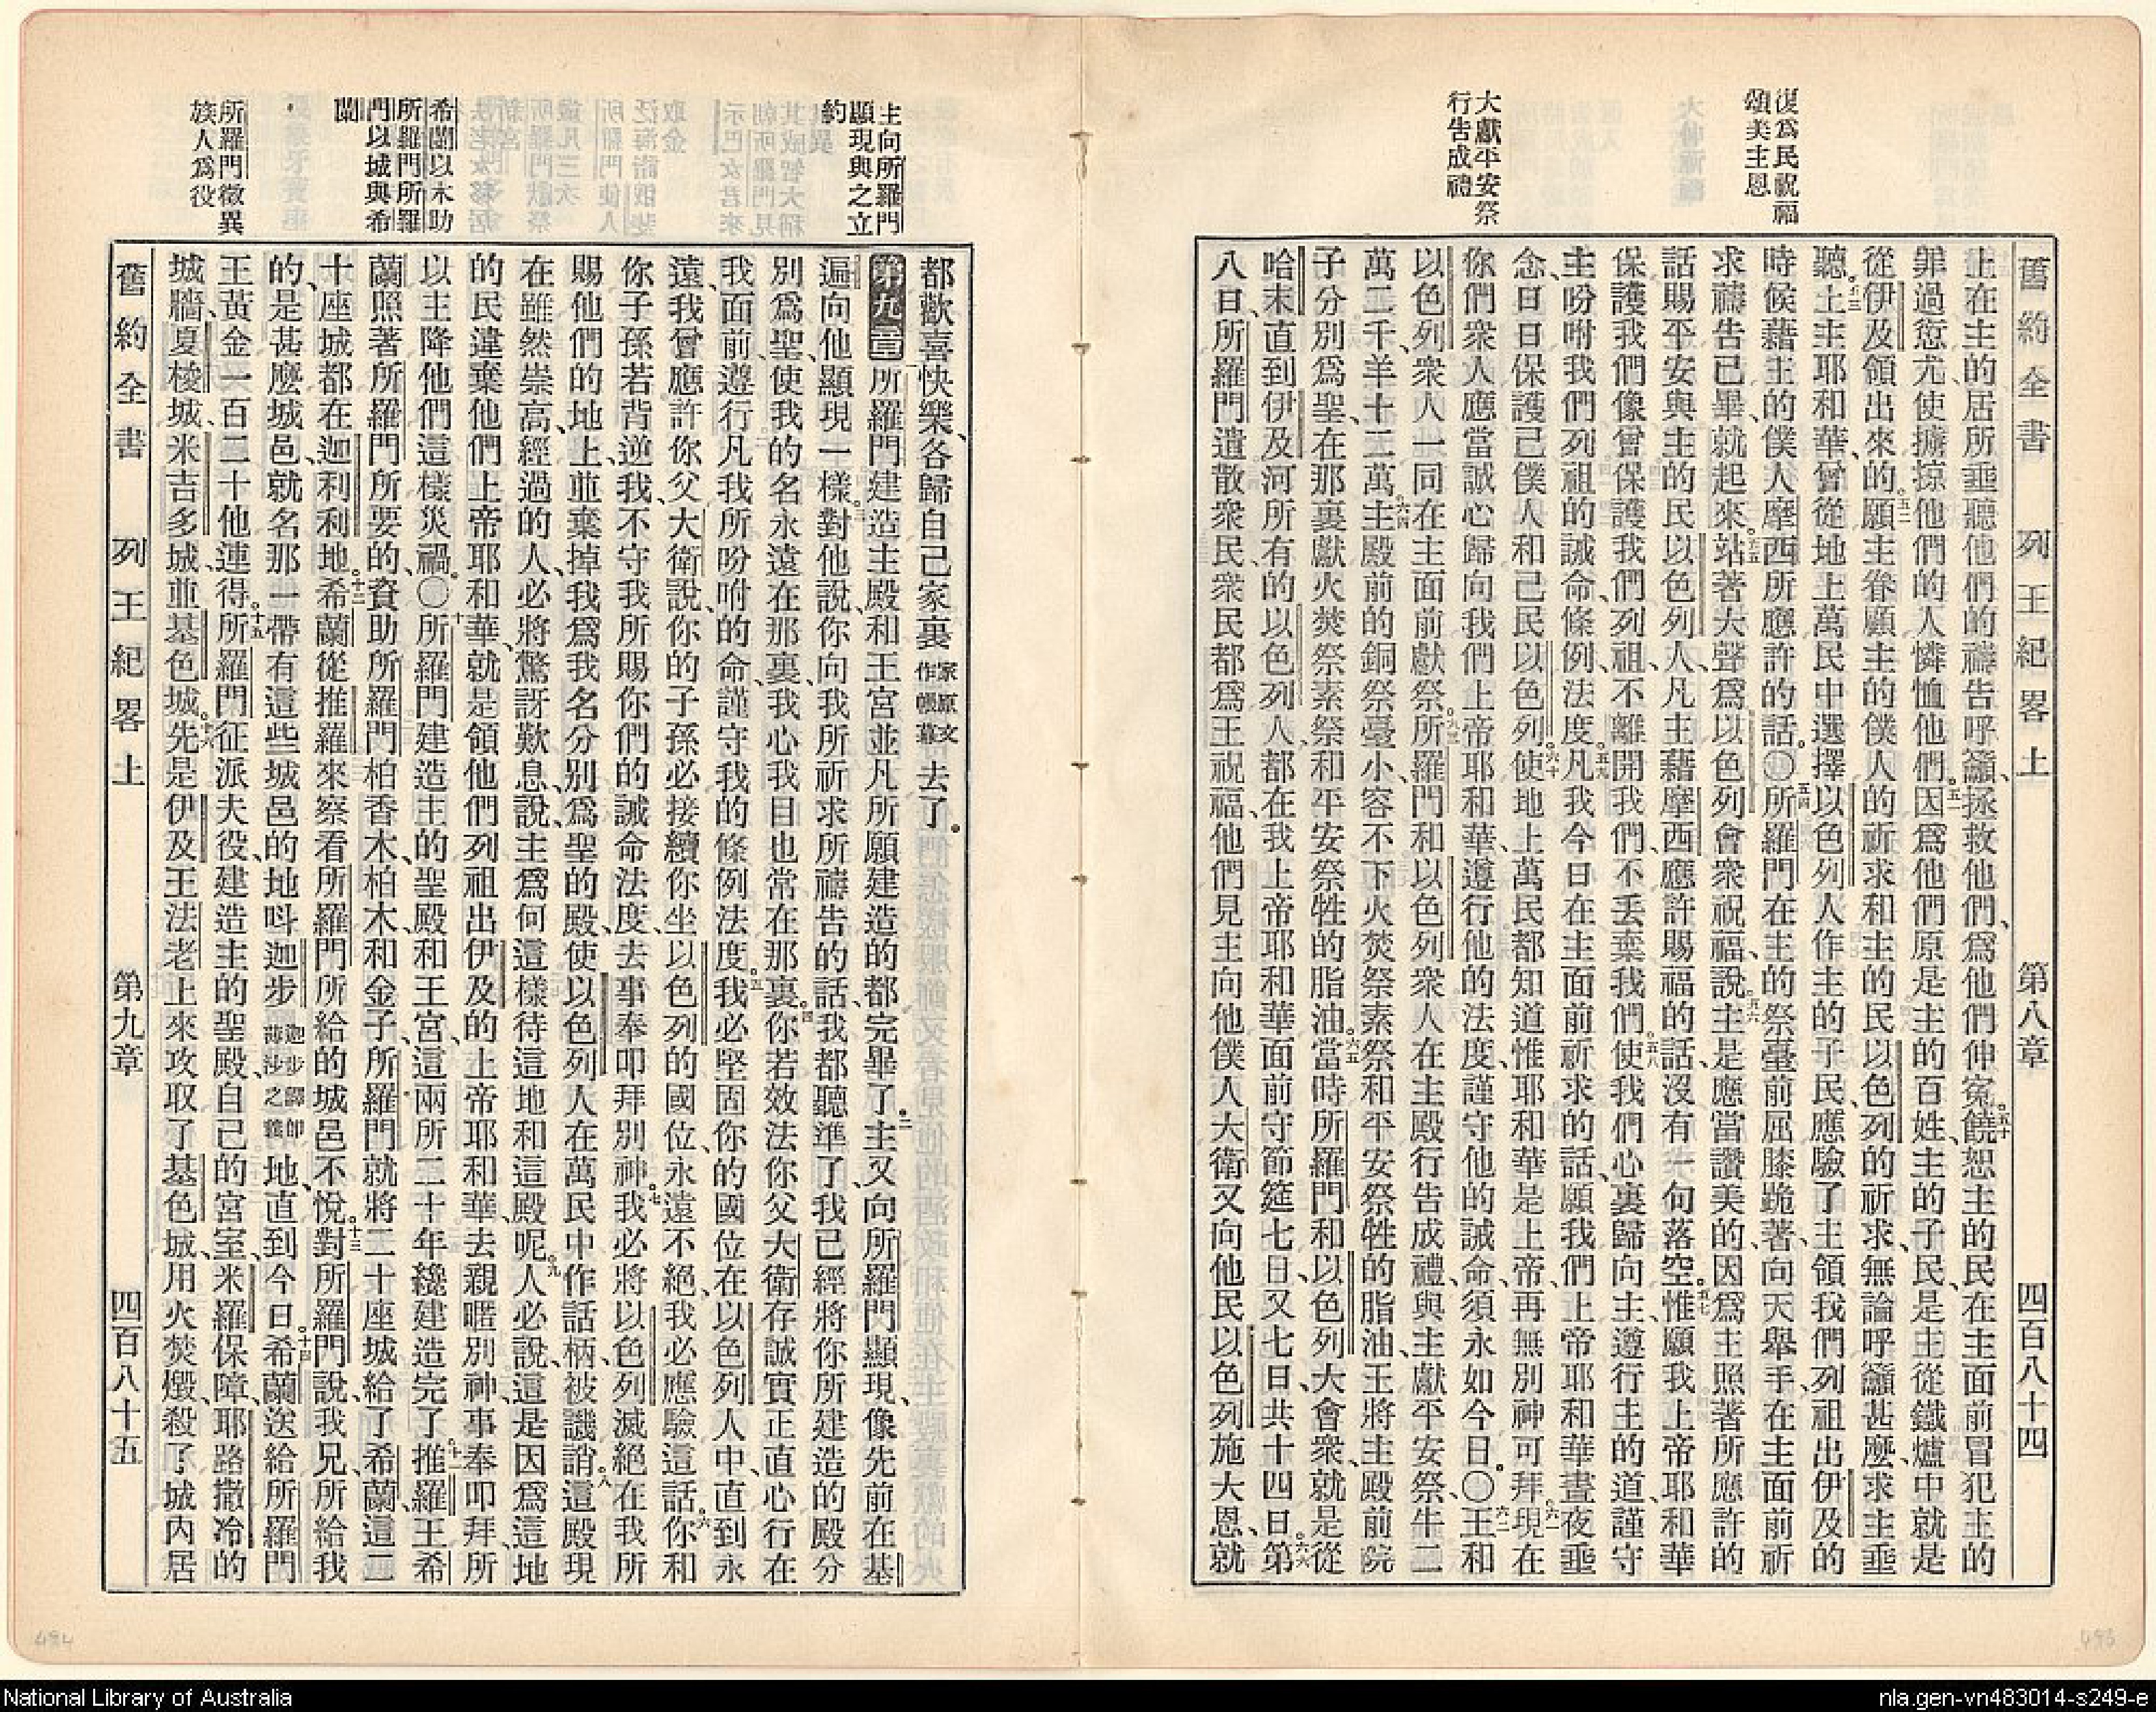 復爲民祝福
頌美主恩
大獻平安祭
行告成禮
舊約全書 列王紀畧上 第八章 四百八十四
上在主的居所垂聽他們的禱告呼籲、拯救他們、爲他們伸寃。五十饒恕主的民在主面前冒犯主的
罪過愆尤、使擄掠他們的人憐恤他們。五一因爲他們原是主的百姓、主的子民、是主從鐵爐中就是
從伊及領出來的。五二願主眷顧主的僕人的祈求和主的民以色列的祈求、無論呼籲甚麼、求主垂
聽。五三主主耶和華、曾從地上萬民中選擇以色列人作主的子民、應驗了主領我們列祖出伊及的
時候藉主的僕人摩西所應許的話。〇五四所羅門在主的祭臺前屈膝跪著、向天舉手、在主面前祈
求禱告已畢、就起來。五五站著大聲爲以色列會衆祝福、說、五六主是應當讚美的、因爲主照著所應許的
話賜平安與主的民以色列人、凡主藉摩西應許賜福的話、沒有一句落空。五七惟願我上帝耶和華
保護我們像曾保護我們列祖、不離開我們、不丟棄我們。五八使我們心裏歸向主、遵行主的道、謹守
主吩咐我們列祖的誡命條例、法度。五九凡我今日在主面前祈求的話、願我們上帝耶和華晝夜垂
念、日日保護己僕人和己民以色列。六十使地上萬民都知道惟耶和華是上帝、再無別神可拜。六一現在
你們衆人應當誠心歸向我們上帝耶和華、遵行他的法度、謹守他的誡命、須永如今日。〇六二王和
以色列衆人一同在主面前獻祭。六三所羅門和以色列衆人在主殿行告成禮、與主獻平安祭、牛二
萬二千、羊十二萬。六四主殿前的銅祭臺小、容不下火焚祭素祭和平安祭牲的脂油、王將主殿前院
子分別爲聖、在那裏獻火焚祭素祭和平安祭牲的脂油。六五當時所羅門和以色列大會衆、就是從
哈末直到伊及河所有的以色列人、都在我上帝耶和華面前守節筵七日、又七日、共十四日。六六第
八日、所羅門遣散衆民、衆民都爲王祝福、他們見主向他僕人大衛又向他民以色列施大恩、就
主向所羅門
顯現與之立
約
希蘭以木助
所羅門所羅
門以城與希
蘭
所羅門徵異
族人爲役
都歡喜快樂、各歸自己家裏家原文作帳幕去了。
第九章 所羅門建造主殿和王宮並凡所願建造的都完畢了。二主又向所羅門顯現、像先前在基
遍向他顯現一樣。三對他說、你向我所祈求所禱告的話、我都聽準了、我已經將你所建造的殿分
別爲聖、使我的名永遠在那裏、我心我目也常在那裏。四你若效法你父大衛存誠實正直心行在
我面前、遵行凡我所吩咐的命、謹守我的條例法度。五我必堅固你的國位在以色列人中、直到永
遠、我曾應許你父大衛說、你的子孫必接續你坐以色列的國位、永遠不絕、我必應驗這話。六你和
你子孫若背逆我、不守我所賜你們的誡命法度、去事奉叩拜別神。七我必將以色列滅絕在我所
賜他們的地上、並棄掉我爲我名分別爲聖的殿、使以色列人在萬民中作話柄、被譏誚。八這殿現
在雖然崇高、經過的人必將驚訝歎息、說、主爲何這樣待這地和這殿呢。九人必說、這是因爲這地
的民違棄他們上帝耶和華、就是領他們列祖出伊及的上帝耶和華、去親暱別神、事奉叩拜、所
以主降他們這樣災禍。〇十所羅門建造主的聖殿和王宮、這兩所二十年纔建造完了。十一推羅王希
蘭照著所羅門所要的、資助所羅門柏香木、柏木和金子、所羅門就將二十座城給了希蘭、這二
十座城都在迦利利地。十二希蘭從推羅來察看所羅門所給的城邑、不悅。十三對所羅門說、我兄所給我
的、是甚麼城邑、就名那一帶有這些城邑的地叫迦步迦步譯卽薄沙之義地、直到今日。十四希蘭送給所羅門
王黃金一百二十他連得。十五所羅門征派夫役、建造主的聖殿、自己的宮室、米羅保障、耶路撒冷的
城牆、夏梭城、米吉多城、並基色城。十六先是伊及王法老上來攻取了基色城、用火焚燬、殺了城內居
舊約全書 列王紀畧上 第九章 四百八十五
494
493
National Library of Australia
nla.gen-vn483014-s249-e